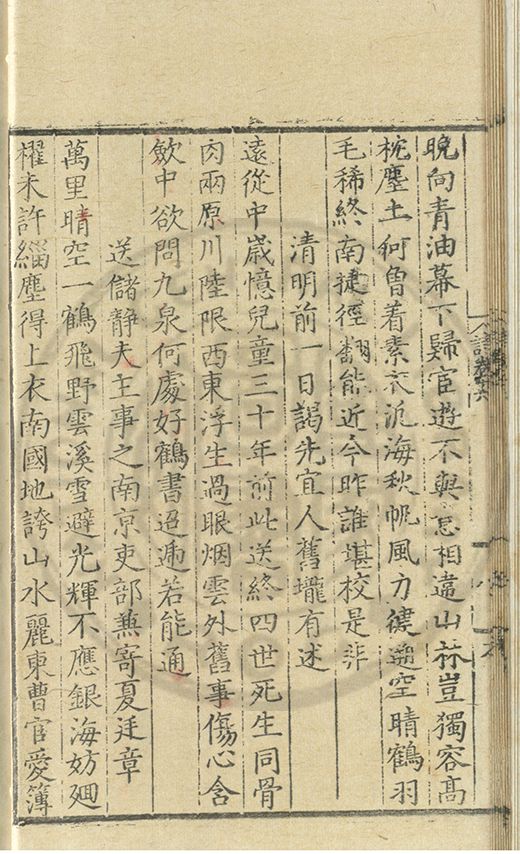 晚向青油幕下歸宦遊不與意相違山林豈獨容高
枕塵土何曾着素衣汎海秋帆風力健遡空晴鶴羽
毛稀終南捷徑翻能近今昨誰堪校是非
清明前一日謁先宜人舊壠有述
遠從中歲憶兒童三十年前此送終四世死生同骨
肉兩原川陸限西東浮生過眼烟雲外舊事傷心含
歛中欲問九泉何處好鶴書迢遞若能通
送儲静夫主事之南京吏部兼寄夏廷章
萬里晴空一鶴飛野雲溪雪避光輝不應銀海妨廻
櫂未許緇塵得上衣南國地誇山水麗東曹官愛簿